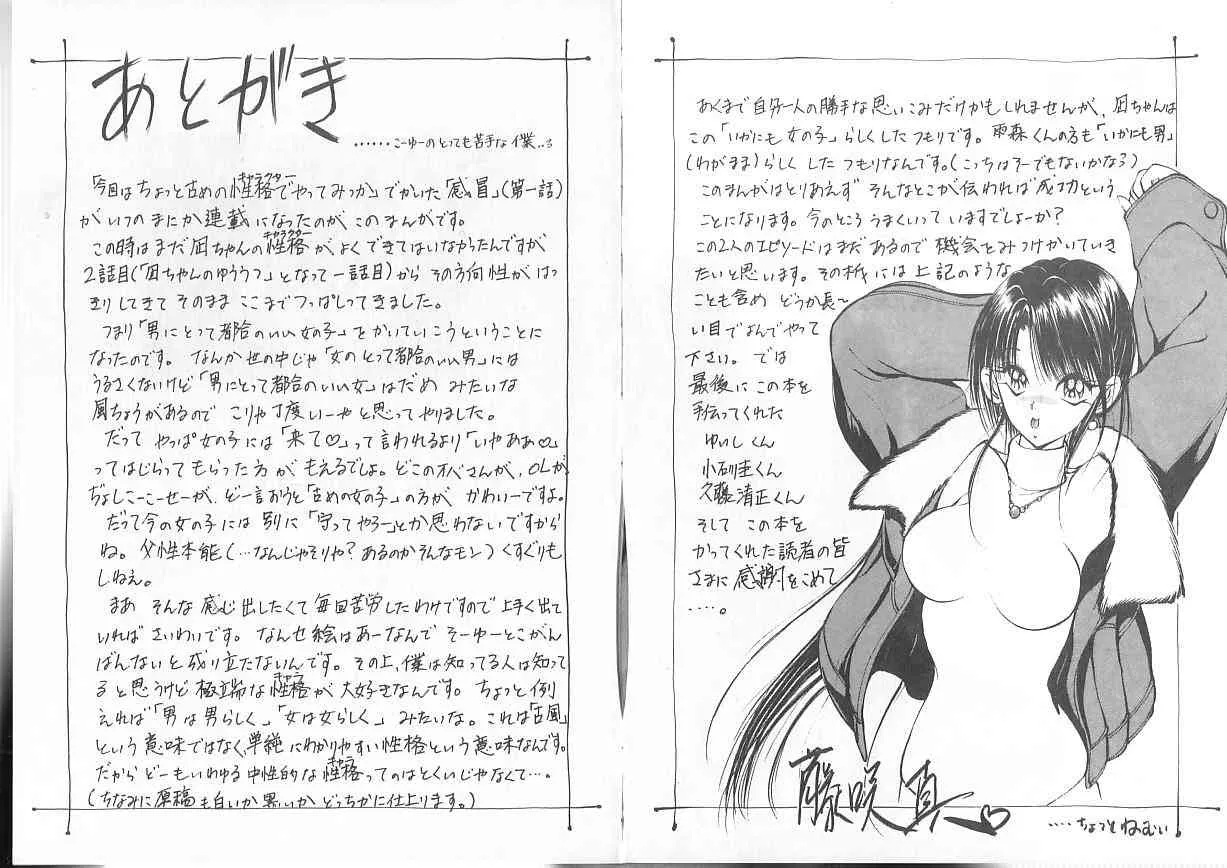 あとがき
……こーゆーのとっても苦手な僕..ろ
「今回はちょっと古めの性格でやってみっか」でかいた「感冒」(第一話)
キャラクター
がいつのまにか連載になったのがこのまんがです。
この時はまだ凪ちゃんの性格がよくできてはいなかったんですが
キャラクター
2話目(「凪ちゃんのゆううつ」となって一話目)からその方向性がはっ
きりしてきてそのままここまでつっぱしってきました。
つまり「男にとって都合のいい女の子」をかいていこうということに
なったのです。なんか世の中じゃ「女のとって都合のいい男」には
うるさくないけど「男にとって都合のいい女」はだめみたいな
風ちょうがあるのでこりゃ丁度いーやと思ってやりました。
だってやっぱ女の子には「来て♡」って言われるより「いやぁあ♡」
ってはじらってもらった方がもえるでしょ。どこのオバさんが、OLが
ぢょしこーこーせーが、どー言おうと「古めの女の子」の方がかわいーですよ。
だって今の女の子には別に「守ってやろー」とか思わないですから
ね。父性本能(…なんじゃそりゃ?あるのかそんなモン)くすぐりも
しねぇ。
まあそんな感じ出したくて毎回苦労したわけですので上手く出て
いればさいわいです。なんせ絵はあーなんでそーゆーとこがん
ばんないと成り立たないんです。その上、僕は知ってる人は知って
ると思うけど極端な性格が大好きなんです。ちょっと例
キャラ
えれば「男は男らしく」「女は女らしく」みたいな。これは「古風」
という意味ではなく、単純にわかりやすい性格という意味なんです。
だからどーもいわゆる中性的な性格ってのはとくいじゃなくて…。
キャラ
(ちなみに原稿も白いか黒いかどっちかに仕上ります。)
あくまで自分一人の勝手な思いこみだけかもしれませんが、凪ちゃんは
この「いかにも女の子」らしくしたつもりです。雨森くんの方も「いかにも男」
(わがまま)らしくしたつもりなんです。(こっちはそーでもないかなろ)
このまんがはとりあえずそんなとこが伝われば成功という
ことになります。今のところうまくいっていますでしょーか?
この2人のエピソードはまだあるので機会をみつけかいていき
たいと思います。その折には上記のような
ことも含めどうか長~
い目でよんでやって
下さい。では
最後にこの本を
手伝ってくれた
ゆいしくん
小砂圭くん
久藤清正くん
そしてこの本を
かってくれた読者の皆
さまに感謝をこめて
‥‥。
藤咲真♡
‥‥ちょっとねむい。